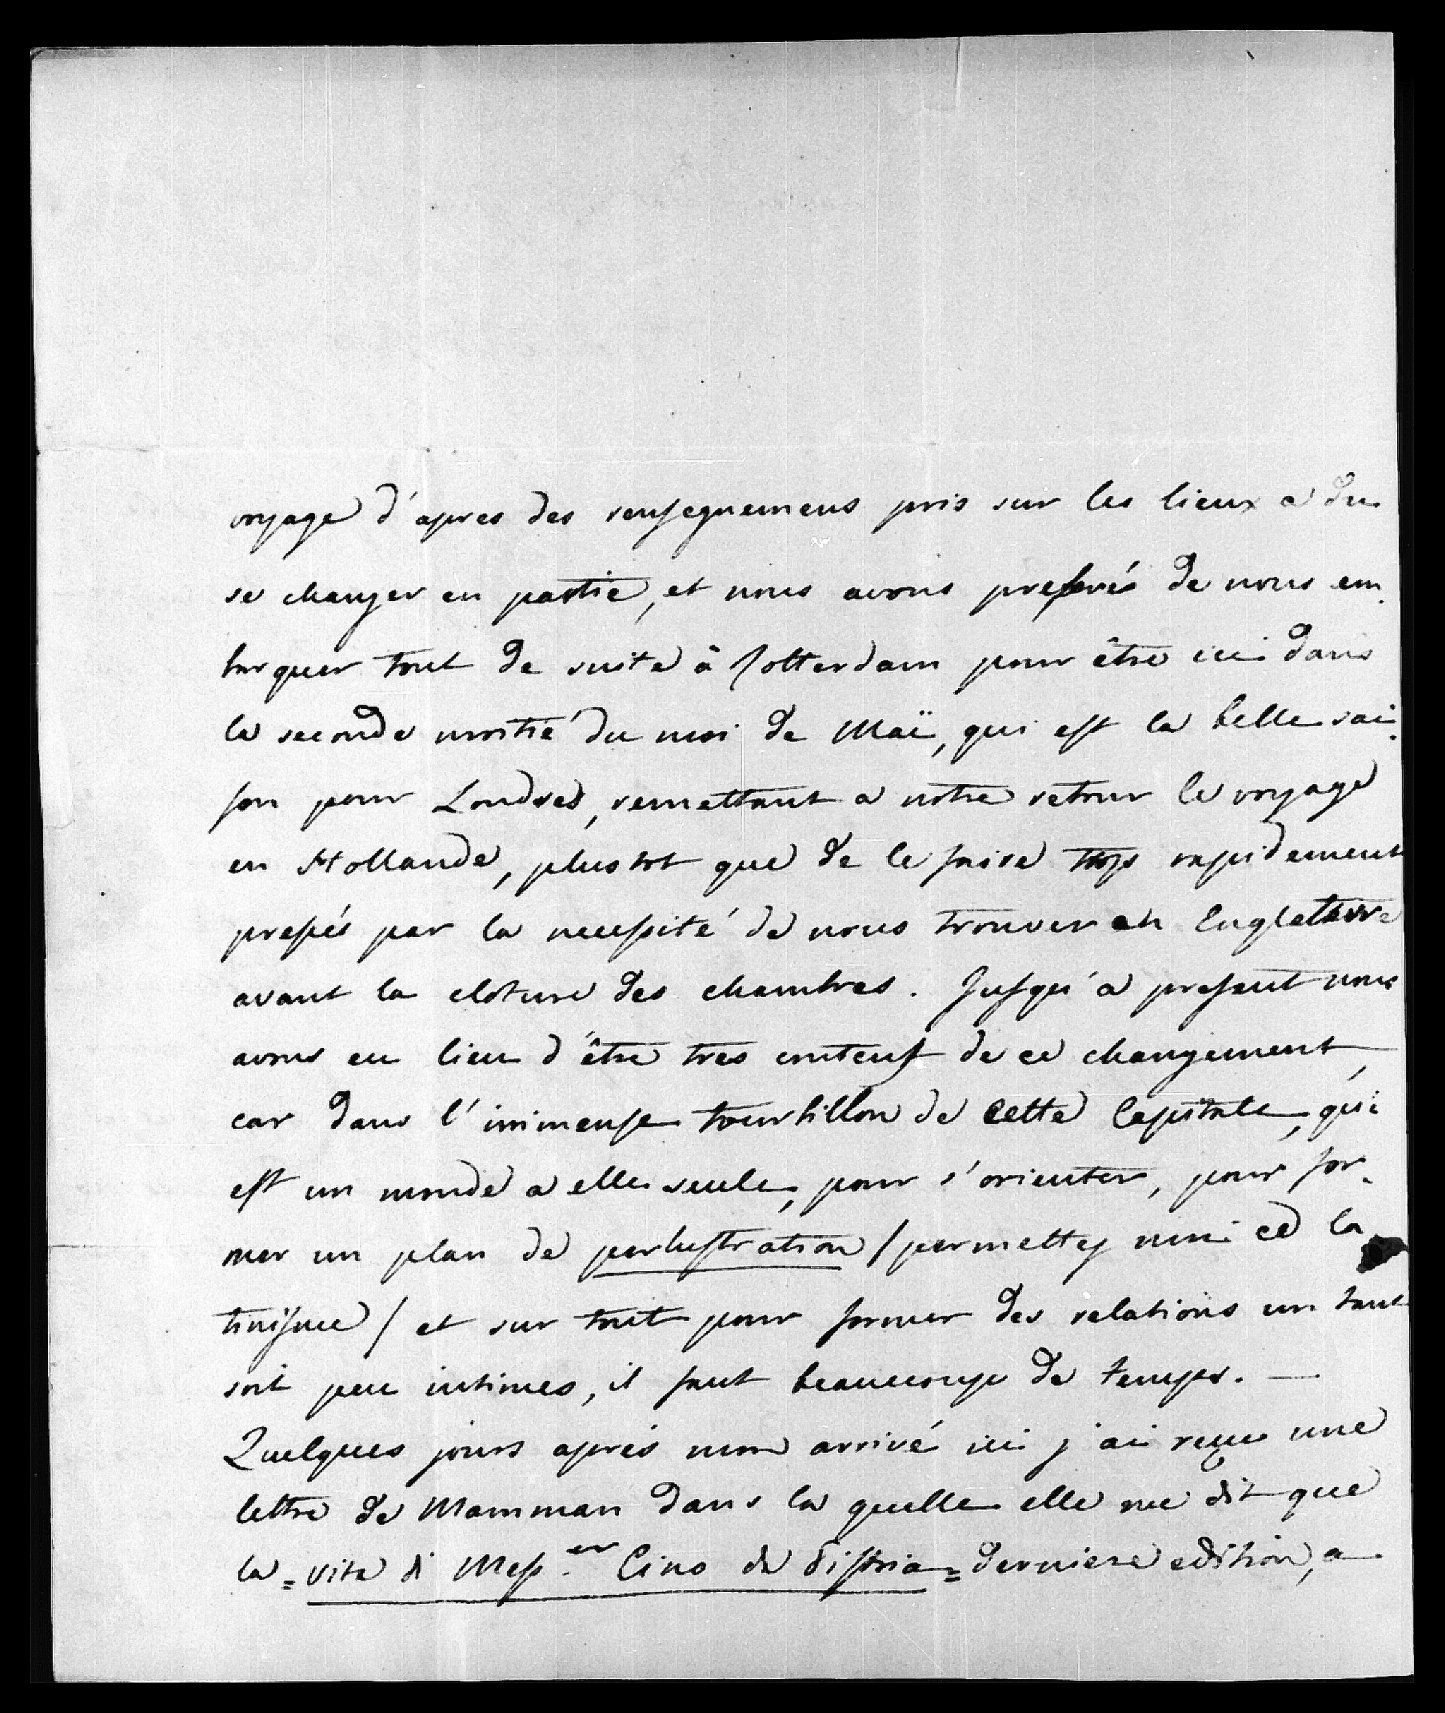 voyage d'apres des rensegnemens pris sur les lieux a du
se changer en partie, et nous avons preferés de nous em.
barquer tout de suite â Rotterdam pour être ici dans
la seconde moitié du moi de Maï, qui est la belle sai.
son pour Londres, remettant a notre retour le voyage
en Hollande, plustot que de le faire trop rapidement
pressés par la necessité de nous trouver en Engleterre
avant la cloture des chambres. Jusqu'a present nous
avons eu lieu d'être tres contenst de ce changement,
car dans l'immense tourbillon de cette Capitale, qui
est un monde a elle seule, pour s'orienter, pour for.
mer un plan de perlustration / permettez moi ce la
tinisme / et sur tout pour former des relations un tant
soit peu intimes, il faut beaucoup de temps. —
Quelques jours aprés mon arrivé ici j'ai reçue une
lettre de Mamman dans la quelle elle me dit que
la = vita di Mess.er Cino da Pistoia = derniere edition, a